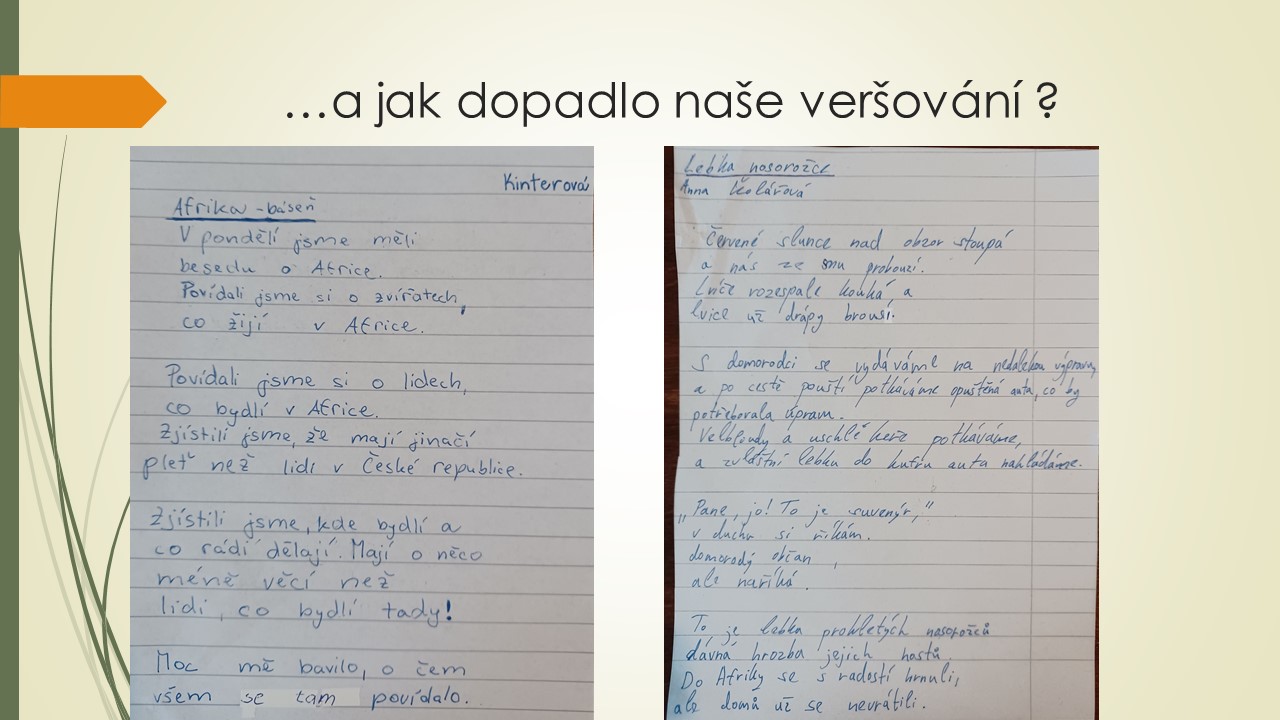 …a jak dopadlo naše veršování ?
Kinterová
Afrika - báseň
V pondělí jsme měli
besedu o Africe.
Povídali jsme si o zvířatech,
co žijí v Africe.
Povídali jsme si o lidech,
co bydlí v Africe.
Zjistili jsme, že mají jinačí
pleť než lidi v České republice.
Zjistili jsme, kde bydlí a
co rádi dělají. Mají o něco
méně věcí než
lidi, co bydlí tady!
Moc mě bavilo, o čem
všem se tam povídalo.
Lebka nosorožce
Anna Kolářová
Červené slunce nad obzor stoupá
a nás ze snu probouzí.
Lvíče rozespale kouká, a
lvice už drápy brousí.
S domorodci se vydáváme na nedalekou výpravu,
a po cestě pouští potkáváme opuštěná auta, co by
potřebovala úpravu.
Velbloudy a uschlé keře potkáváme,
a zvláštní lebku do kufru auta nakládáme.
„Pane, jo! To je suvenýr,"
v duchu si říkám.
domorodý občan ,
ale naříká.
To je lebka prokletých nosorožců
dávná hrozba jejich hostů.
Do Afriky se s radostí hrnuli,
ale domů už se nevrátili.